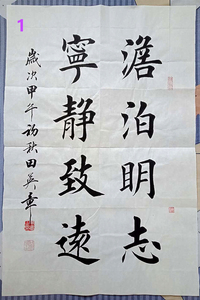 1
澹泊明志
寧靜致遠
歲次甲午初秋田英章